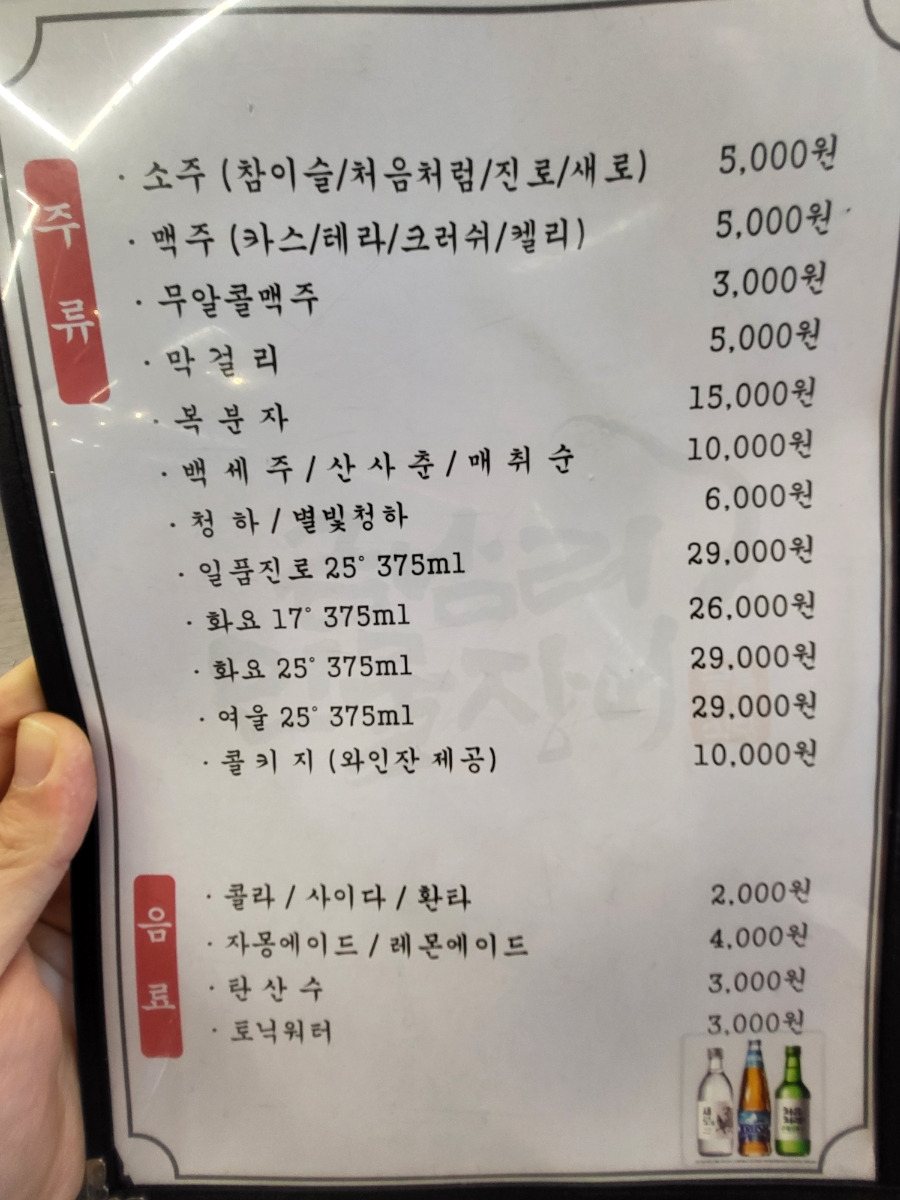 주류
· 소주 (참이슬/처음처럼/진로/새로) 5,000원
· 맥주 (카스/테라/크러쉬/켈리) 5,000원
· 무알콜맥주 3,000원
· 막걸리 5,000원
· 복분자 15,000원
· 백세주/산사춘/매취순 10,000원
· 청하/별빛청하 6,000원
· 일품진로 25° 375ml 29,000원
· 화요 17° 375ml 26,000원
· 화요 25° 375ml 29,000원
· 여울 25° 375ml 29,000원
· 콜키지 (와인잔 제공) 10,000원
음료
· 콜라 / 사이다 / 환타 2,000원
· 자몽에이드 / 레몬에이드 4,000원
· 탄산수 3,000원
· 토닉워터 3,000원
새로
처음처럼